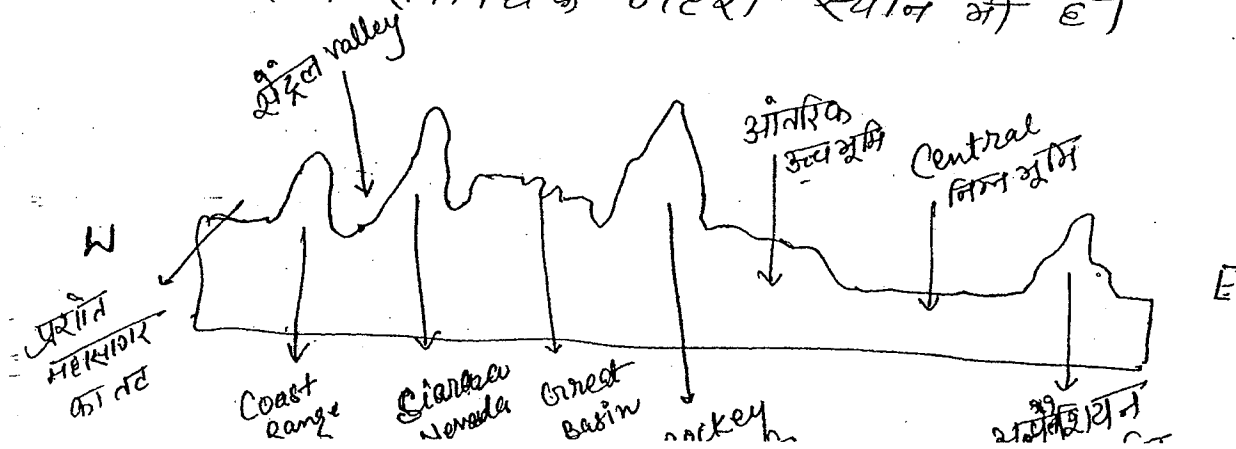 स्थान भी है।
सेंट्रल valley
आंतरिक
उच्च भूमि
Central
निम्न भूमि
W
E
प्रशांत
महासागर
का तट
Coast
Range
Nevada
Great
Basin
Rockey